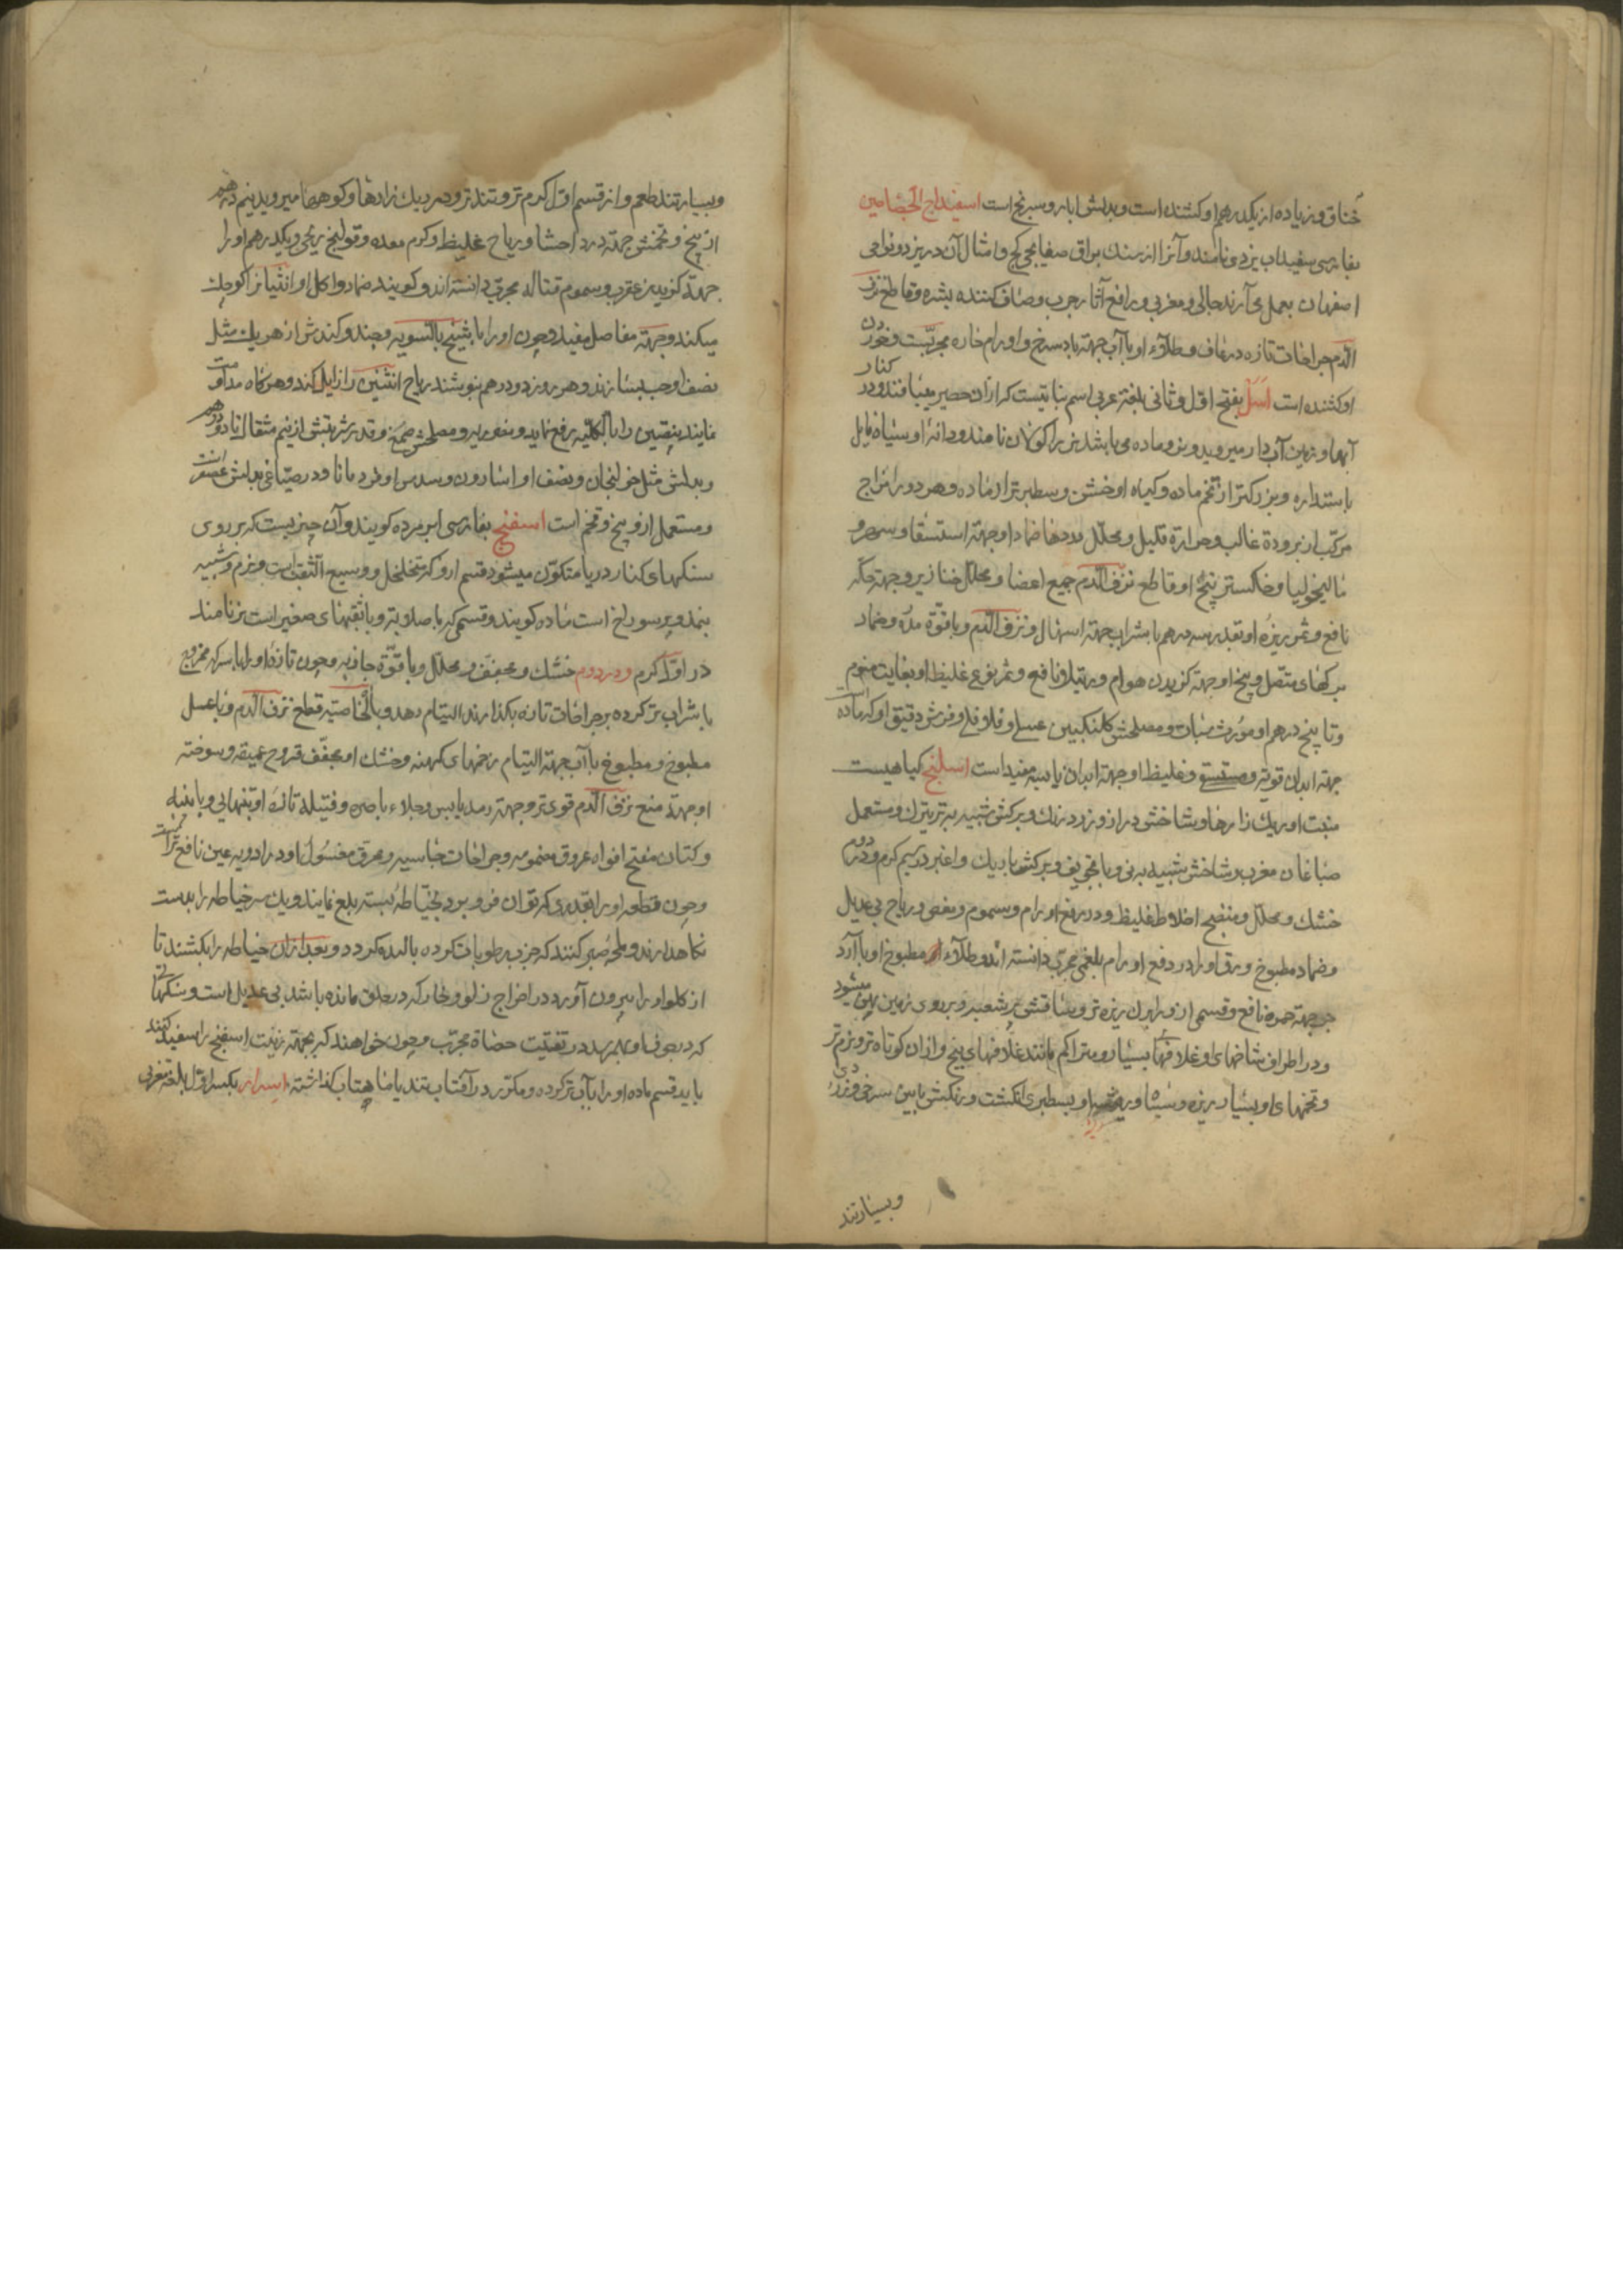 خناق و زیاده از یکدرهم او کشنده است و بدلش ابار و سرنج است اسفیداج الجصاصین
بفارسی سفیداب یزدی نامند و آنرا از سنک براق صفایحی کج و امثال آن در یزد و نواحی
اصفهان بعمل می‌آرند جالی و مغری و رافع آثار جرب و صاف کننده بشره و قاطع نزف
الدم جراحات تازه و رعاف و طلاء او با آب جهته باد سرخ و اورام حاره مجربست و خوردن
او کشنده است اسل بفتح اول و ثانی بلغته عربی اسم نباتیست که از آن حصیر میبافند و در کنار
آبها و زمین آب دار میروید و نر و ماده می باشد نر را کولان نامند و دانهٔ او سیاه مایل
باستداره و بزرکتر از تخم ماده و کیاه او خشن و سطبرتر از ماده و هر دو را مزاج
مرکب از برودة غالب و حرارة قلیل و محلل مدها ضمادا و جهته استسقا و سهر و
مالیخولیا و خاکستر بیخ او قاطع نزف الدم جمیع اعضا و محلل خنازیر و جهته حکه
نافع و شرب بزره او بقدر سه درهم با شراب جهته اسهال و نزف الدم و با قوّة مدرّه و ضماد
برکهای متصل و بیخ او جهته کزیدن هوام و رتیلا نافع و ثمر نوع غلیظ او بغایت منوم
و تا پنج درهم او مورث سبات و مصلحش کلنکبین عسلی و فلافلی و فرش دقیق او که ماده است
جهته ابدان قویه و غلیظ او جهته ابدان یابسه مفید است اسلنج کیاهیست
منبت او ریک زارها و شاخش دراز و زرد رنک و برکش شبیه به تره تیزک و مستعمل
صباغان مغرب و شاخش شبیه به نی و با تجویف و برکش باریک و اغبر در سیم کرم و در دوم
خشک و محلل و منضج اخلاط غلیظ و در رفع اورام و سموم و مغص و ریاح بی عدیل
و ضماد مطبوخ ورق او را در دفع اورام بلغمی مجرب دانسته اند و طلاء مطبوخ او با آرد
جو جهته حمره نافع و قسمی از او را برک ریزه تر و ساقش پر شعبه و بر روی زمین پهن میشود
و در اطراف شاخهای او غلافهای بسیار و متراکم مانند غلافهای بنج و از ان کوتاه تر و نرم تر
و تخمهای او بسیار ریزه و سیاه و ریشه او بسطبری انکشت و رنکش مابین سرخی و زردی
و بسیار تند
و بسیار تند طعم و از قسم اول کرم تر و تند تر و در ریک زارها و کوهها میروید نیم درهم
از بیخ و تخمش جهته درد احشا و ریاح غلیظ و کرم معده و قولنج ریحی و یکدرهم او را
جهتة کزیدن عقرب و سموم قتاله مجرب دانسته اند و کویند ضماد و اکل او انثیان را کوچک
میکند و جهته مفاصل مفید و چون او را با شیح بالسویه و جند و کندش از هر یک مثل
نصف او حب بسازند و هر روز دو درهم بنوشند ریاح انثیین را زایل کند و هرکاه مداومت
نمایند بیضتین را بالکلیه رفع نماید و مضر ریه و مصلحش صمغ و قدر شربتش از نیم مثقال تا دو درهم
و بدلش مثل خولنجان و نصف او اسارون و سدس او قردمانا و در صباغی بدلش عصفر است
و مستعمل از او بیخ و تخم است اسفنج بفارسی ابر مرده کویند و آن چیزیست که بر روی
سنکهای کنار دریا متکوّن میشود قسم او را که متخلخل و وسیع الثقب است و نرم و شبیه
بنمد و پر سوراخ است ماده کویند و قسمی که با صلابتر و با ثقبهای صغیر است نر نامند
در اول کرم و در دوم خشک و مجفف و محلل و با قوّة جاذبه و چون تازه او را با سرکه ممزوج
با شراب تر کرده بر جراحات تازه بکذارند التیام دهد و بالخاصیته قطع نزف الدم و با عسل
مطبوخ و مطبوخ با آب جهته التیام زخمهای کهنه و خشک او مجفف قروح عمیقه و سوخته
او جهتة منع نزف الدم قوی تر و جهته رمد یابس و جلاء باصره و فتیله تازه او بتنهایی و با پنبه
و کتان مفتح افواه عروق مضمومه و جراحات جاسیه و محرق مغسول او در ادویه عین نافع تر است
و چون قطعه او را بقدری که توان فرو برد بخیاطه بسته بلع نمایند و یک سر خیاطه را بدست
نکاهدارند و لمحه صبر کنند که جذب رطوبات کرده بالیده کردد و بعد از ان خیاطه را بکشند تا
از کلو او را بیرون آورد در اخراج زلو و خار که در حلق مانده باشد بی عدیل است و سنکهای
که در جوف او بهم رسد در تفتیت حصاة مجرب و چون خواهند که بجهته زینت اسفنج را سفید کنند
باید قسم ماده او را بآب تر کرده و مکرر در آفتاب تند یا ماهتاب کذاشته اسرار بکسر اول بلغته مغربی